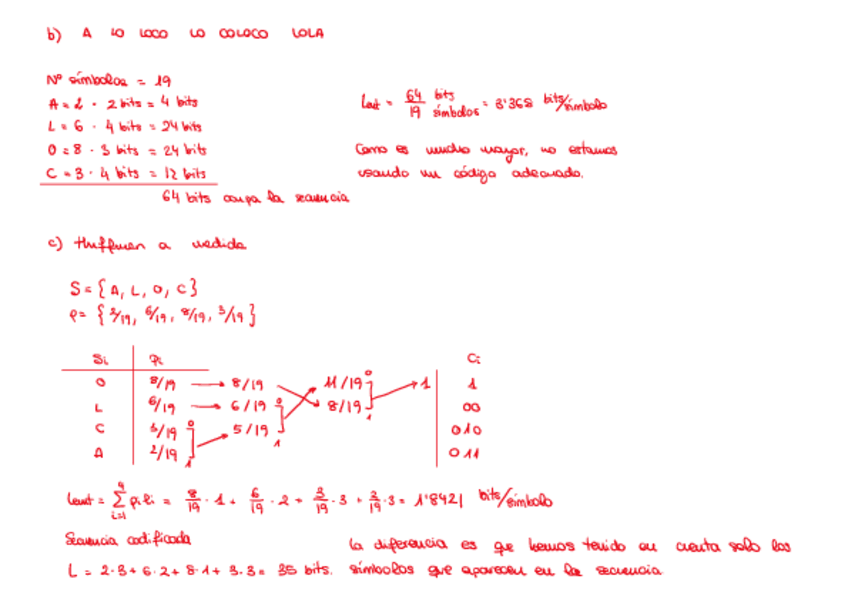 b) A LO LOCO LO COLOCO LOLA
Nº símbolos = 19
A = 2 · 2 bits = 4 bits
L = 6 · 4 bits = 24 bits
O = 8 · 3 bits = 24 bits
C = 3 · 4 bits = 12 bits
64 bits ocupa la secuencia
Lest = 64/19 bits/símbolos = 3'368 bits/símbolo
Como es mucho mayor, no estamos
usando un código adecuado.
c) Huffman a medida
S = { A, L, O, C }
P = { 2/19, 6/19, 8/19, 3/19 }
Si Pi Ci
O 8/19 → 8/19 11/19 0 → 1 1
L 6/19 → 6/19 0 8/19 1 00
C 3/19 0 5/19 1 010
A 2/19 1 011
Lest = ∑ i=1 4 pi li = 8/19 · 1 + 6/19 · 2 + 3/19 · 3 + 2/19 · 3 = 1'8421 bits/símbolo
Secuencia codificada
L = 2·3 + 6·2 + 8·1 + 3·3 = 35 bits.
La diferencia es que hemos tenido en cuenta solo los
símbolos que aparecen en la secuencia